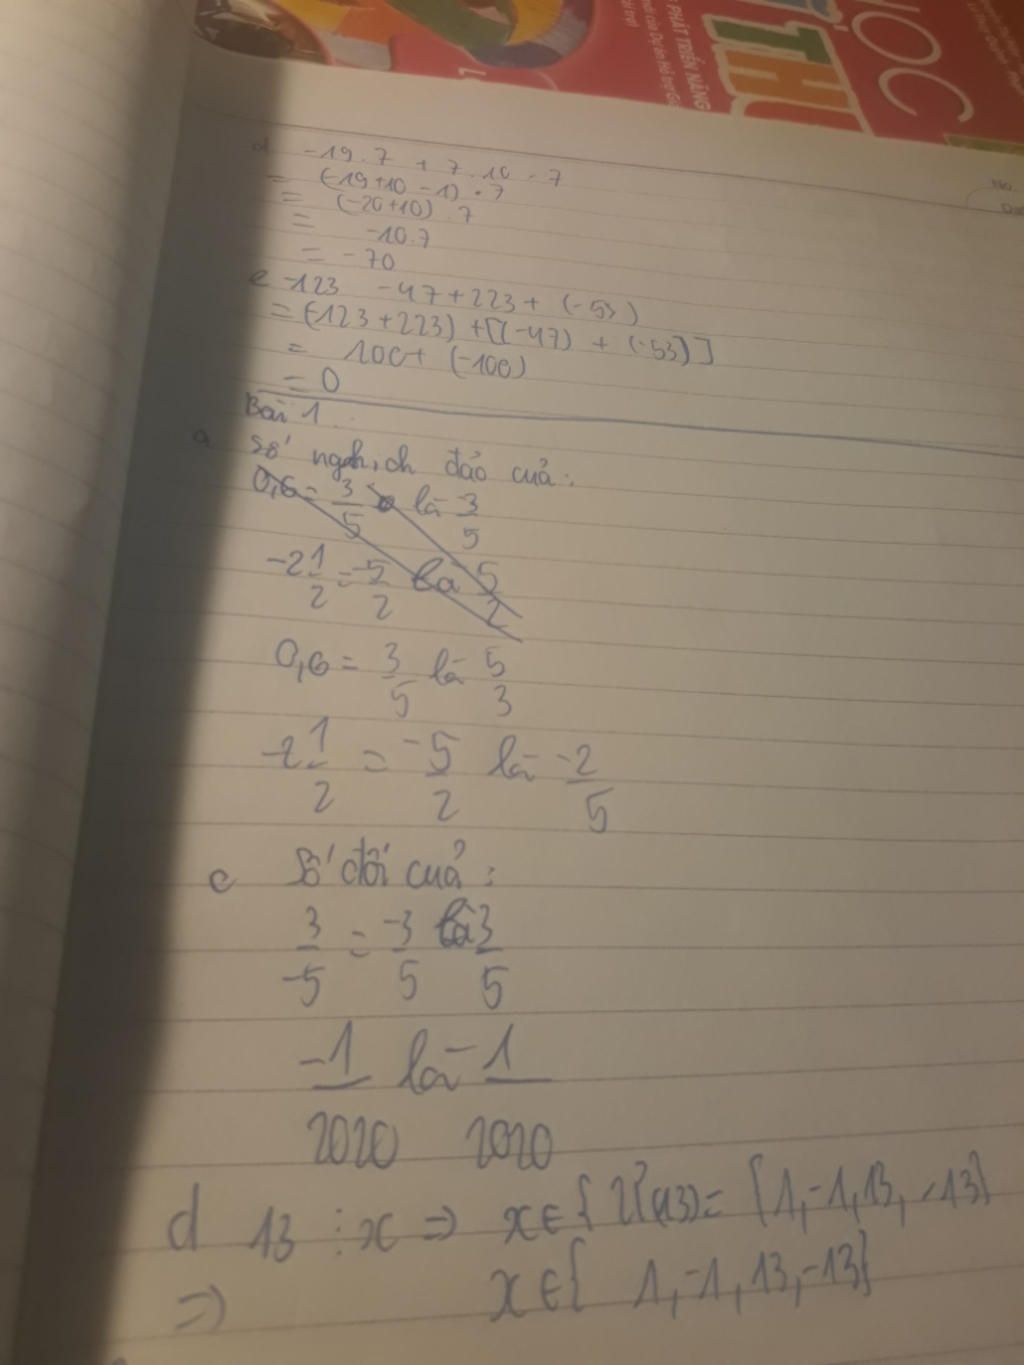 HỌC
THỰ
PHÁT TRIỂN NĂNG
No.
d -19.7 + 7.10 - 7
= (-19+10-1).7
= (-20+10).7
= -10.7
= -70
e -123 -47+223+ (-53)
= (-123+223) +[(-47) + (-53)]
= 100+ (-100)
= 0
Bài 1.
a Số nghịch đảo của:
0,6 = 3/5 là 3/5
-2 1/2 = -5/2 là 5/2
0,6 = 3/5 là 5/3
-2 1/2 = -5/2 là -2/5
c Số đối của:
3/-5 = -3/5 là 3/5
-1/2020 là -1/2020
d 13 ⋮ x => x ∈ { Ư(13) = {1,-1,13,-13}
=> x ∈ { 1,-1,13,-13}